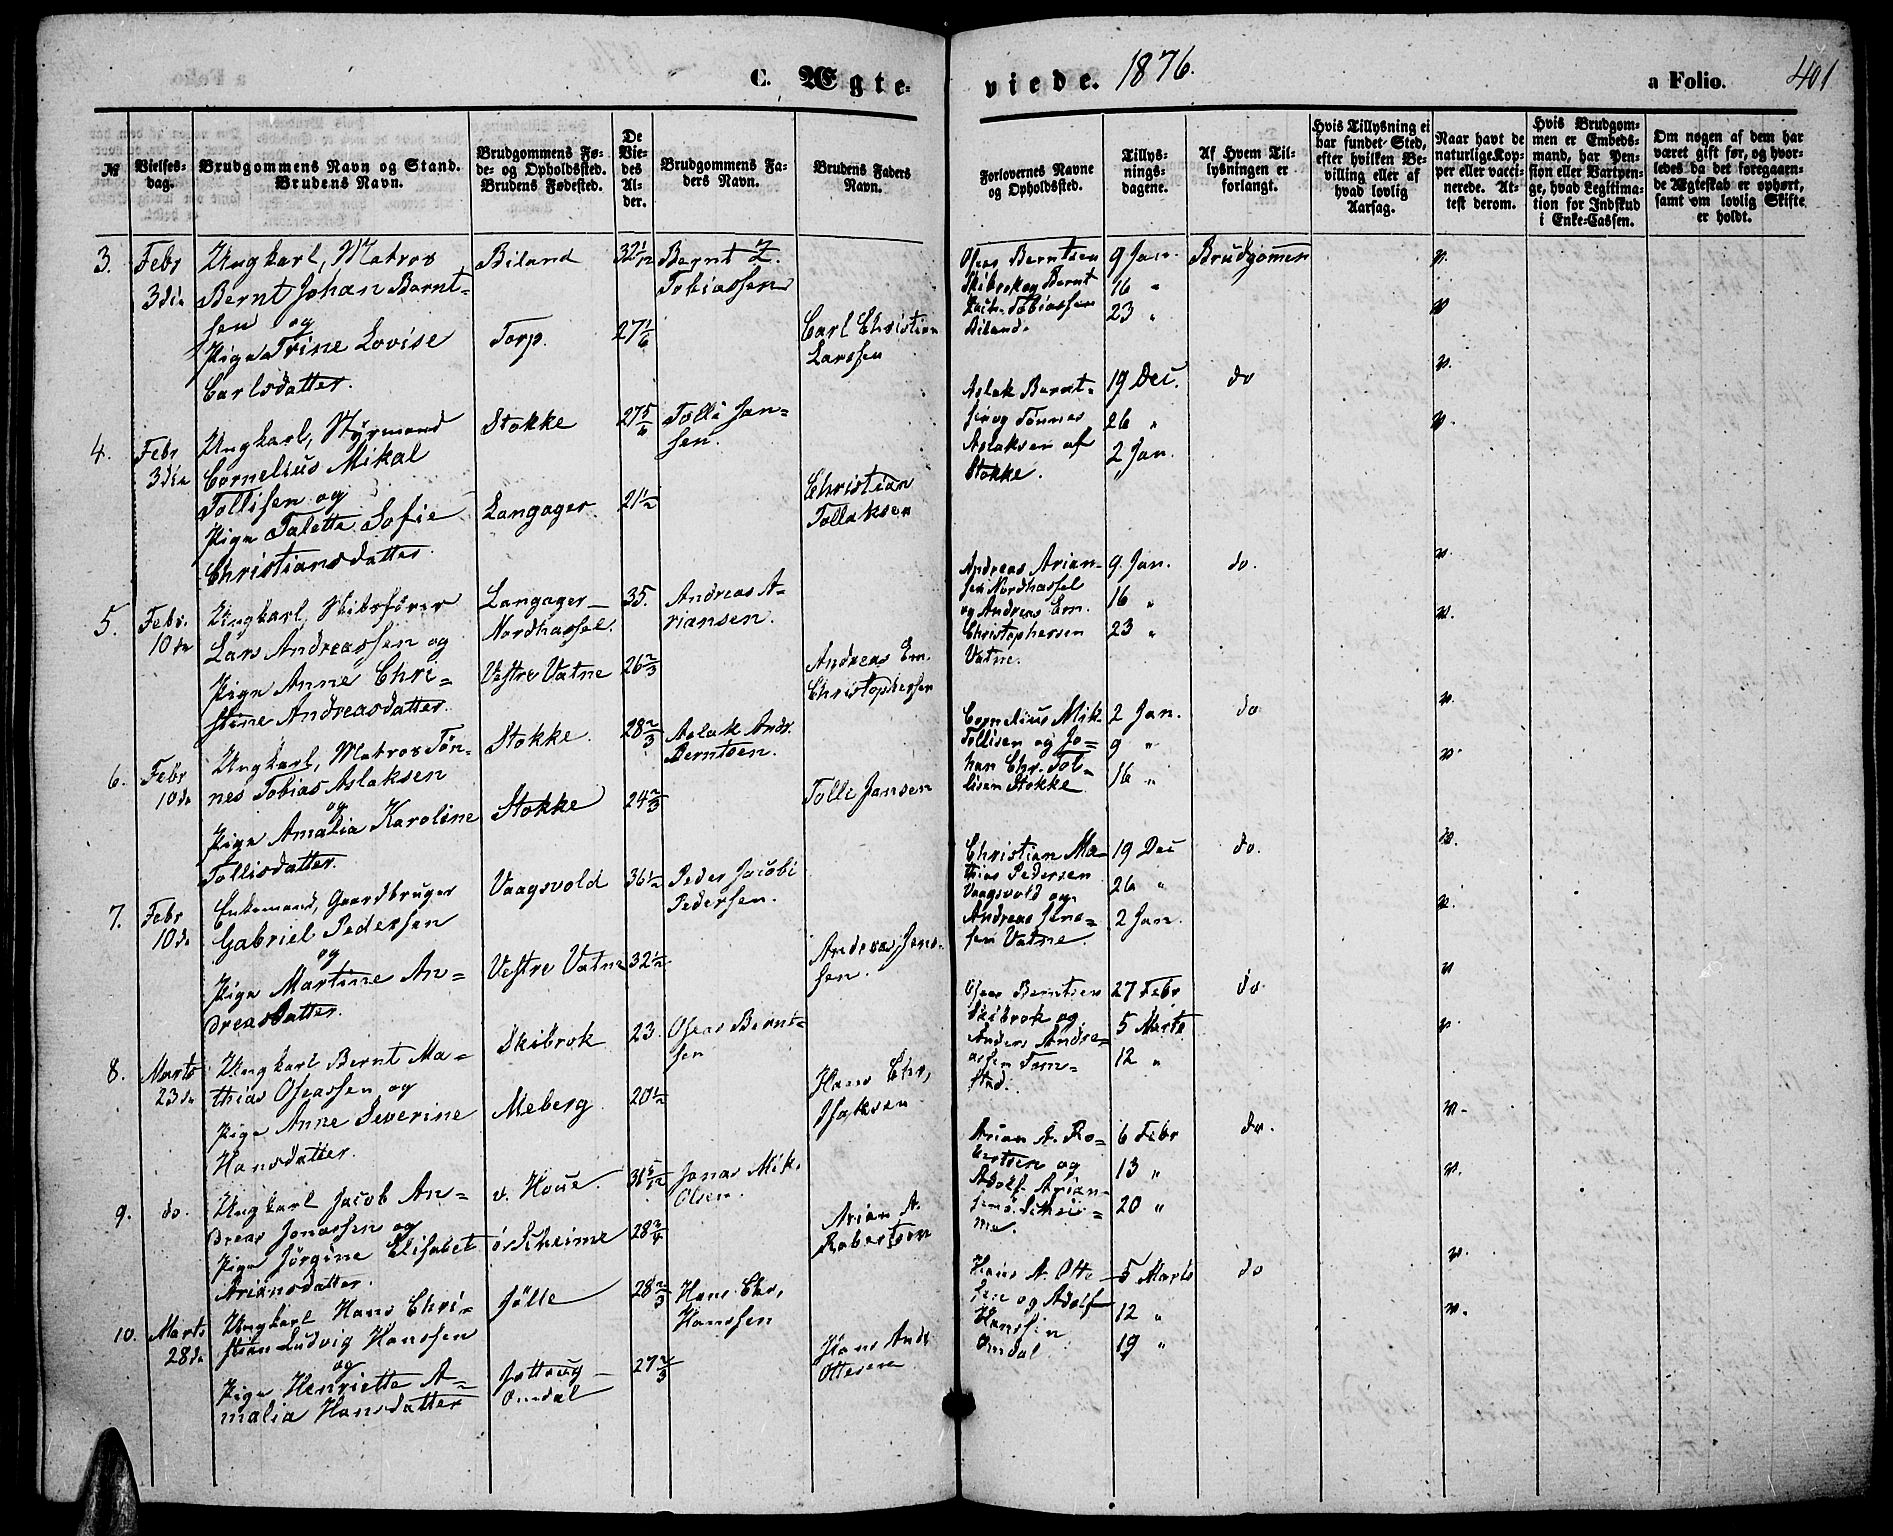 C. Ægte-
viede. 1876.
a Folio.
401
№
Vielses-
dag.
Brudgommens Navn og Stand.
Brudens Navn.
Brudgommens Fø-
de- og Opholdssted.
Brudens Fødested.
De
Vie-
des
Al-
der.
Brudgommens Fa-
ders Navn.
Brudens Faders
Navn.
Forlovernes Navne
og Opholdssted.
Tillys-
nings-
dagene.
Af Hvem Til-
lysningen er
forlangt.
Hvis Tillysning ei
har fundet Sted,
efter hvilken Be-
villing eller af
hvad lovlig
Aarsag.
Naar havt de
naturlige Kop-
per eller vacci-
nerede. At-
test derom.
Hvis Brudgom-
men er Embeds-
mand, har Pen-
sion eller Vartpen-
ge, hvad Legitima-
tion for Indskud
i Enke-Cassen.
Om nogen af dem har
været gift før, og hvor-
ledes da det foregaaen-
de Ægteskab er ophørt,
samt om lovlig Skifte
er holdt.
3.
Febr
3die
Ungkarl, Matros
Bernt Johan Bernt-
sen og
Pige Trine Lovise
Carlsdatter.
Biland
Torp.
32 1/12
27 1/6
Bernt Z.
Tobiassen
Carl Christian
Larssen
Oseas Berntsen
Skibrok og Bernt
Zach. Tobiassen
Biland.
9 Jan.
16 "
23 "
Brudgommen
v.
v.
4.
Febr
3die
Ungkarl, Styrmand
Cornelius Mikal
Tollisen og
Pige Talette Sofie
Christiansdatter.
Stokke
Langager
27 5/6
21 1/2
Tolli Jan-
sen.
Christian
Tollaksen
Aslak Bernt-
sen og Tønnes
Aslaksen af
Stokke.
19 Dec.
26 "
2 Jan.
do
v.
v.
5.
Febr.
10de
Ungkarl, Skibsfører
Lars Andreassen og
Pige Anne Chri-
stine Andreasdatter.
Langager-
Nordhassel.
Vestre Vatne
35.
26 2/3
Andreas A-
riansen.
Andreas Em.
Christophersen
Andreas Arian-
sen Nordhassel
og Andreas Em.
Christophersen
Vatne.
9. Jan.
16 "
23 "
do.
v.
v.
6.
Febr
10de
Ungkarl, Matros Tøn-
nes Tobias Aslaksen
og
Pige Amalia Karoline
Tollisdatter.
Stokke.
Stokke
28 2/3
24 2/3
Aslak Andr.
Berntsen.
Tolli Jansen
Cornelius Mik.
Tollisen og Jo-
han Chr. Tol-
lisen Stokke.
2 Jan.
9 "
16 "
do
v.
v.
7.
Febr
10de
Enkemand, Gaardbruger
Gabriel Pedersen
og
Pige Martine An-
dreasdatter.
Vaagsvold
Vestre Vatne
36 1/2
32 1/2
Peder Jacobi
Pedersen.
Andreas Jens-
sen.
Christian Ma-
thias Pedersen
Vaagsvold og
Andreas Jens-
sen Vatne.
19 Dec
26 "
2 Jan.
do.
v.
v.
8.
Marts
23de
Ungkarl Bernt Ma-
thias Oseassen og
Pige Anne Severine
Hansdatter.
Skibrok
Meberg.
23.
20 1/2
Oseas Bernt-
sen
Hans Chr.
Isaksen
Oseas Berntsen
Skibrok og
Anders Andre-
assen Tom-
stad.
27 Febr
5 Marts
12 "
do.
v
v.
9.
do.
Ungkarl Jacob An-
dreas Jonassen og
Pige Jörgine Elisabet
Ariansdatter.
v. Houe.
ör Scheime
31 5/12
28 3/4
Jonas Mik.
Olsen.
Arian A.
Robertsen
Arian A. Ro-
bertsen og
Adolf Arian-
sen ö. Schei-
me.
6 Febr
13 "
20 "
do.
v.
v.
10.
Marts
28de
Ungkarl Hans Chri-
stian Ludvig Hanssen
og
Pige Henriette A-
malia Hansdatter
Jölle
Omdal
28 2/3
27 2/3
Hans Chr.
Hanssen
Hans Andr
Ottesen
Hans A. Otte-
sen og Adolf
Hanssen
Omdal
5 Marts
12 "
19 "
do
v.
v.